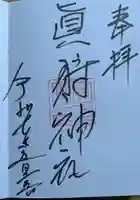 奉拝
眞射神社
令和七年五月三日